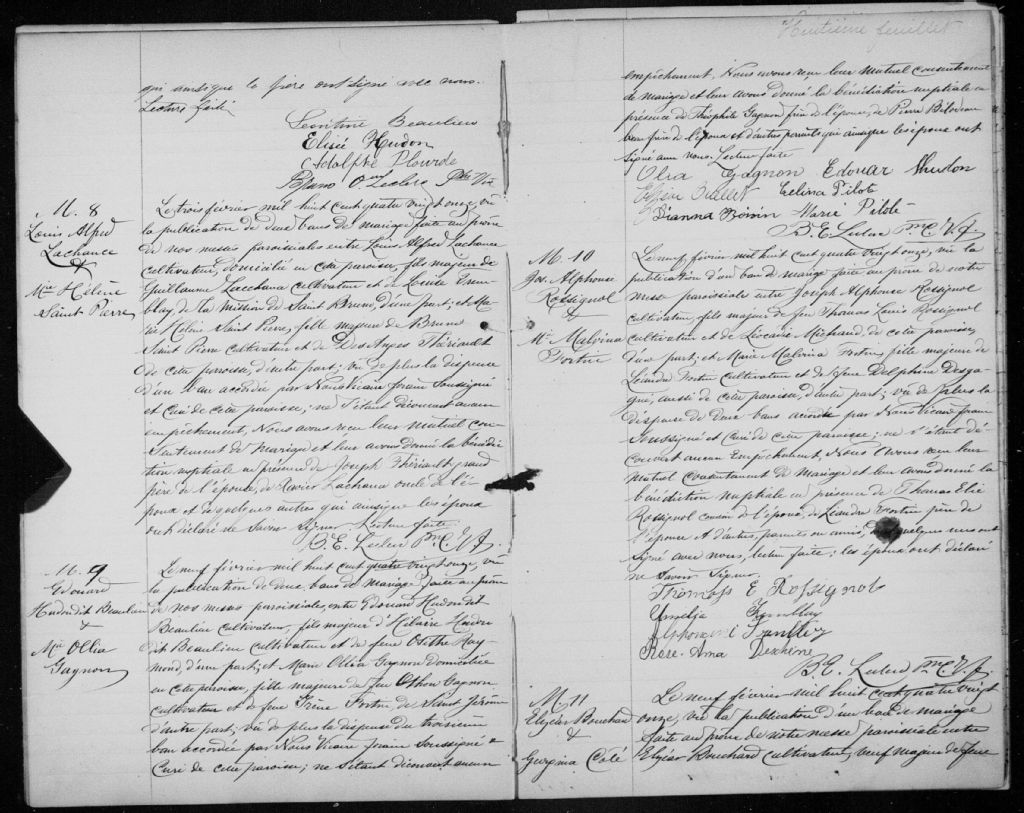 qui ainsi que le père ont signé avec nous.
Lecture faite
Beaulieu
Elisée Hudon
Adolphe Plourde
Leclerc Ptre
M. 8
Louis Alfred
Lachance
&
Mie Hélène
Saint Pierre
Le trois février mil huit cent quatre vingt onze, vu
la publication de deux bans de mariage faite au prône
de nos messes paroissiales entre Louis Alfred Lachance
cultivateur, domicilié en cette paroisse, fils majeur de
Guillaume Lacchana cultivateur et de Louise Trem-
blay, de la mission de Saint Bruno, d'une part; et Ma-
rie Hélène Saint Pierre, fille majeure de Bruno
Saint Pierre cultivateur et de DesAnges Thériault
de cette paroisse, d'autre part; vu de plus la dispense
d'un ban accordée par Nous Vicaire forain Soussigné
et Curé de cette paroisse; ne s'étant découvert aucun
empêchement, Nous avons reçu leur mutuel con-
sentement de mariage et leur avons donné la bénédic-
tion nuptiale en présence de Joseph Thériault grand
père de l'épouse, de Xavier Lachana oncle de l'é-
poux et de quelques autres qui ainsi que les époux
ont déclaré ne savoir signer. Lecture faite
B. E. Leclerc Ptre V. f.
M. 9
Edouard
Hudon dit Beaulieu
&
Mie Ollia
Gagnon
Le neuf février mil huit cent quatre vingt onze, vu
la publication de deux bans de mariage faite au prône
de nos messes paroissiales, entre Edouard Hudon dit
Beaulieu cultivateur, fils majeur d'Hilaire Hudon
dit Beaulieu cultivateur et de feue Osithe Ray-
mond, d'une part; et Marie Ollia Gagnon domiciliée
en cette paroisse, fille majeure de feu Othon Gagnon
cultivateur et de feue Irène Fortin de Saint Jérôme
d'autre part; vu de plus la dispense du troisième
ban accordée par Nous Vicaire forain Soussigné &
Curé de cette paroisse; ne s'étant découvert aucun
Huitième feuillet
empêchement, Nous avons reçu leur mutuel consentement
de mariage et leur avons donné la bénédiction nuptiale en
présence de Théophile Gagnon frère de l'épouse, de Pierre Bilodeau
beau frère de l'époux et d'autres parents qui ainsi que les époux ont
signé avec nous. Lecture faite
Olia Gagnon Edouar Hudon
Ouellet Celina Pilote
Dianna Boivin Marie Pilote
B. E. Leclerc Ptre V. f.
M. 10
Jos. Alphonse
Rossignol
&
Mie Malvina
Fortin
Le neuf février mil huit cent quatre vingt onze, vu la
publication d'un ban de mariage faite au prône de notre
messe paroissiale entre Joseph Alphonse Rossignol
cultivateur, fils majeur de feu Thomas Louis Rossignol
cultivateur et de Léocaise Michaud, de cette paroisse,
d'une part; et Marie Malvina Fortin, fille majeure de
Léandre Fortin cultivateur et de feue Delphine Desga-
gné, aussi de cette paroisse, d'autre part; vu de plus la
dispense de deux bans accordée par Nous Vicaire forain
Soussigné et Curé de cette paroisse; ne s'étant dé-
couvert aucun empêchement, Nous avons reçu leur
mutuel consentement de mariage et leur avons donné la
bénédiction nuptiale en présence de Thomas Elie
Rossignol cousin de l'époux, de Léandre Fortin père de
l'épouse et d'autres, parents ou amis, dont quelques uns ont
signé avec nous, lecture faite; les époux ont déclaré
ne savoir signer.
Thomass E Rossignol
Tremblay
Tremblay
Rose-Ama
B. E. Leclerc Ptre V. f.
M. 11
Elzéar Bouchard
&
Côté
Le neuf février mil huit cent quatre vingt
onze, vu la publication d'un ban de mariage
faite au prône de notre messe paroissiale entre
Elzéar Bouchard cultivateur, veuf majeur de feue